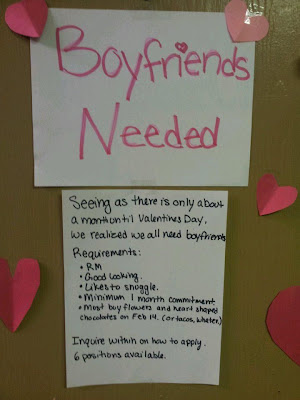 Boyfriends
Needed
Seeing as there is only about
a month until Valentines Day,
we realized we all need boyfriends
Requirements:
• RM
• Good looking.
• Likes to snuggle.
• Minimum 1 month commitment
• Must buy flowers and heart shaped
chocolates on Feb 14. (or tacos, whatev.)
Inquire within on how to apply.
6 positions available.